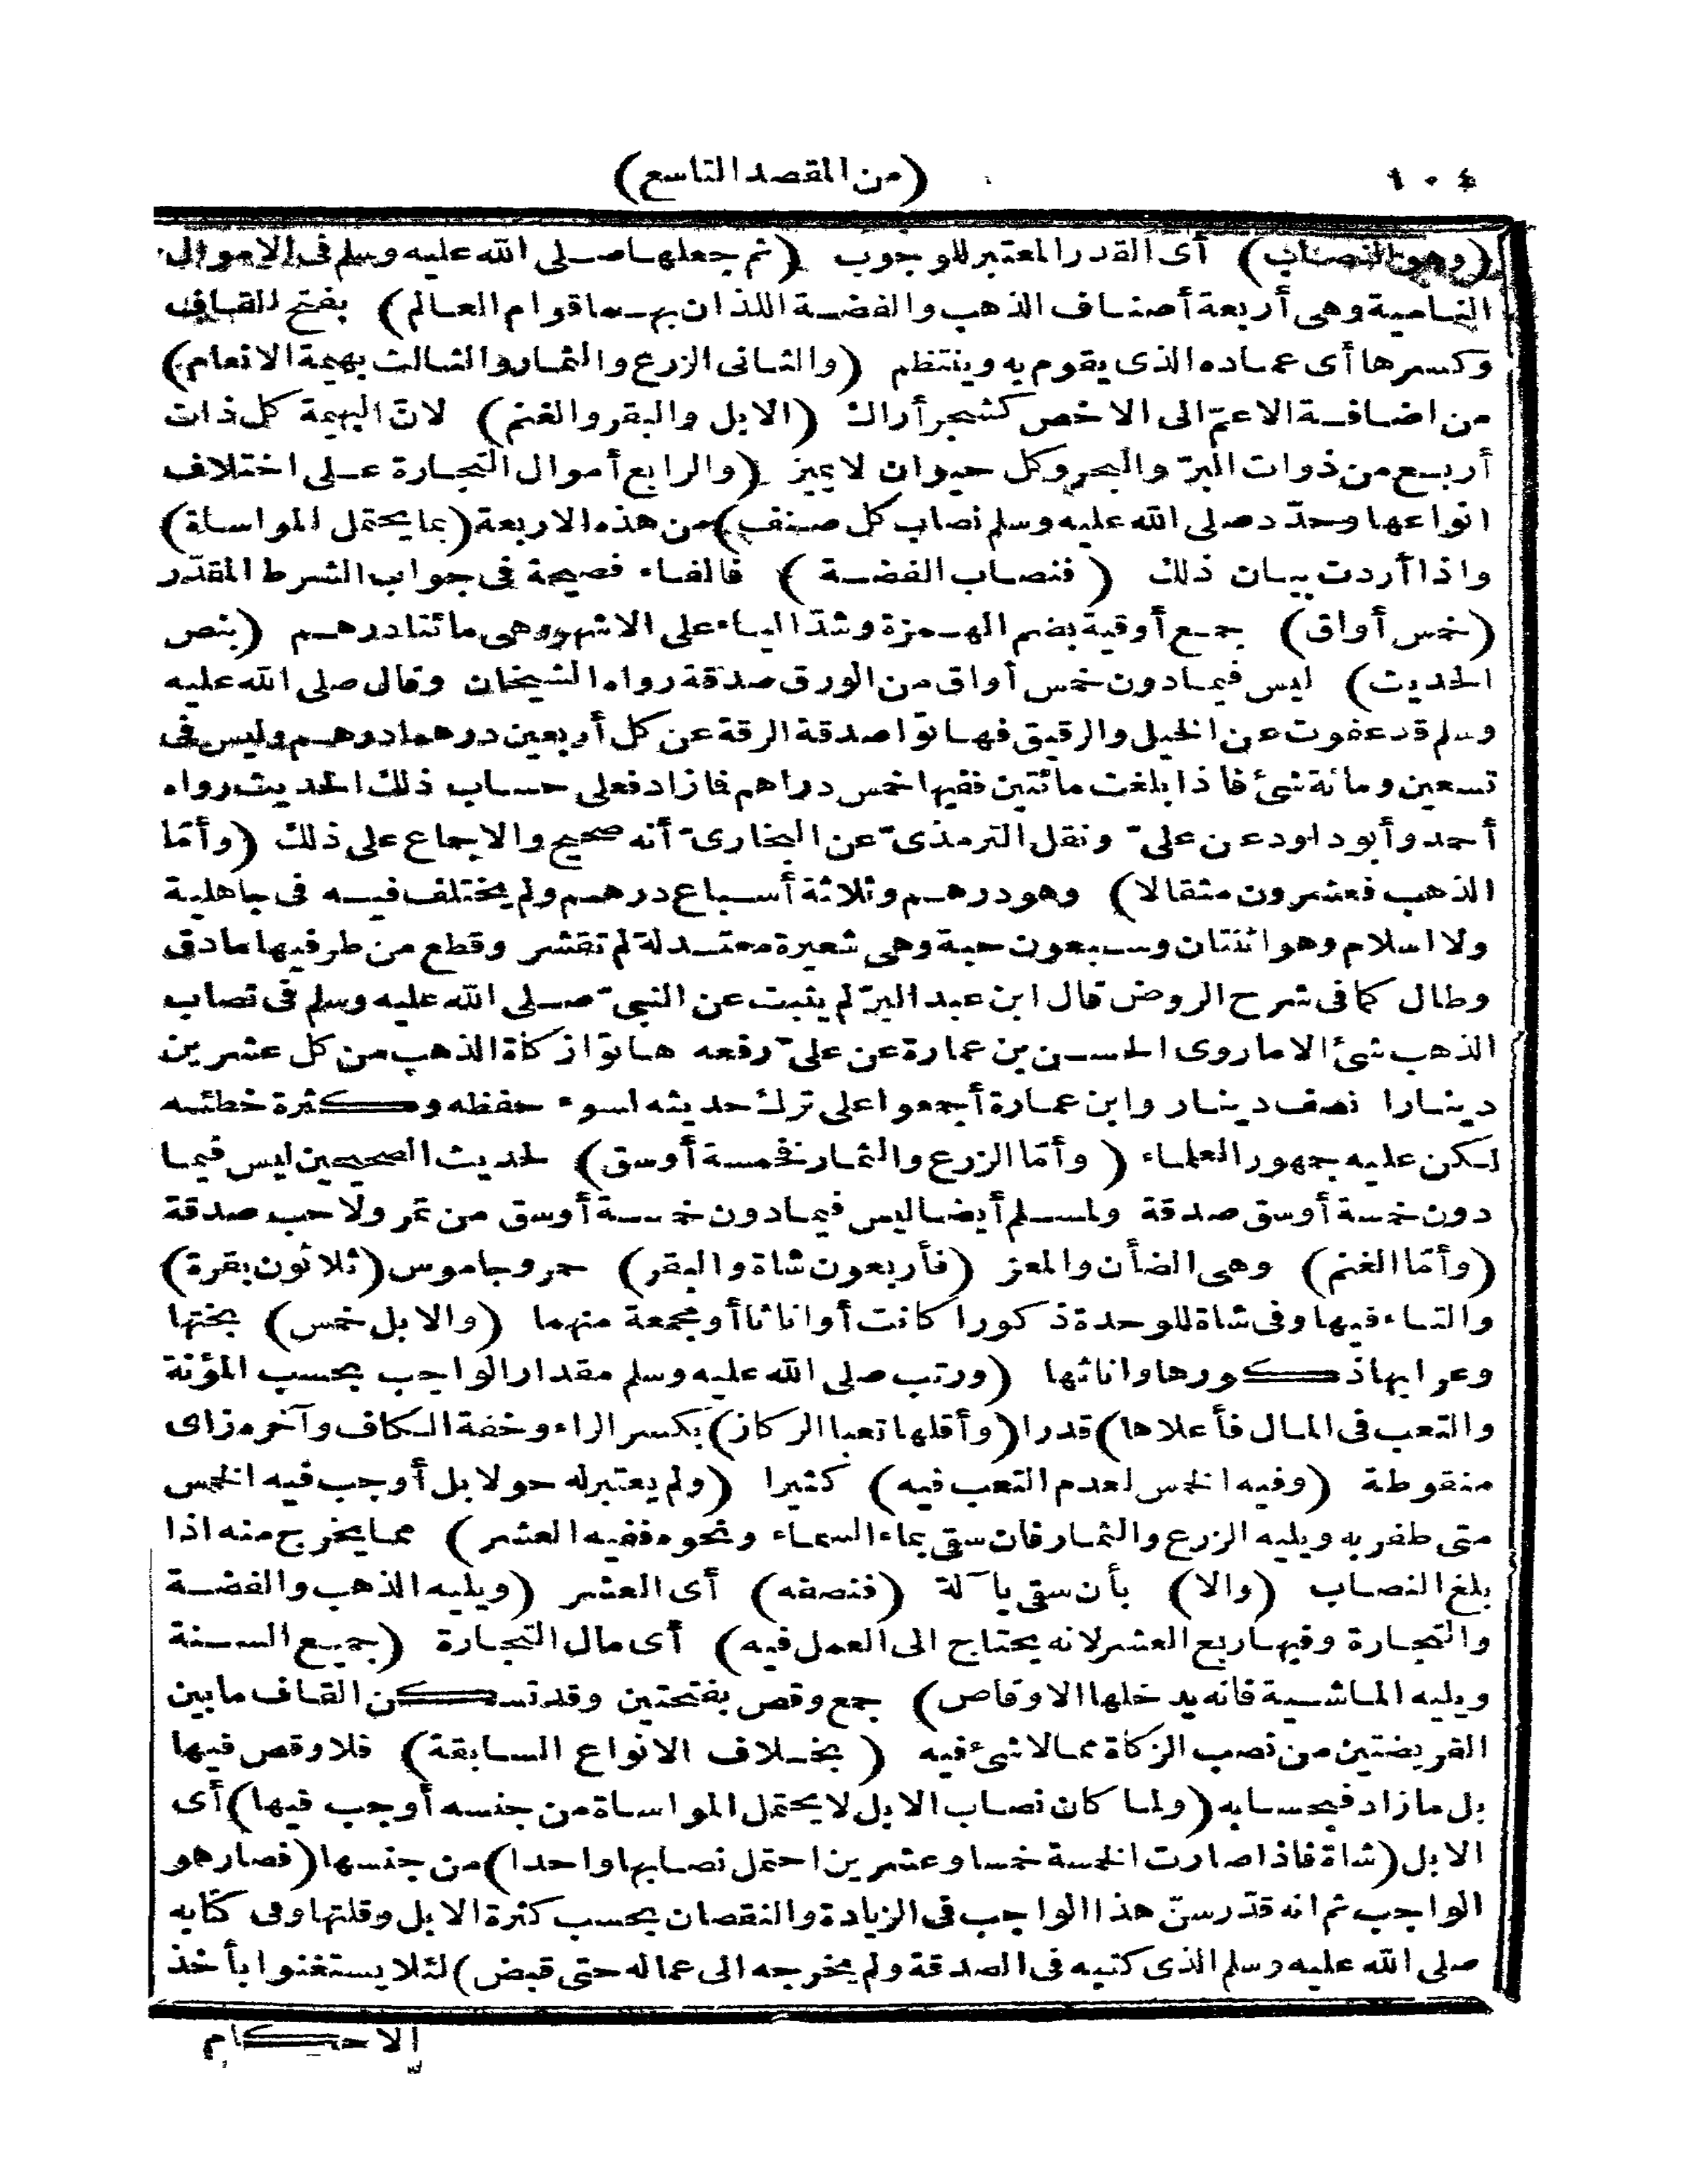 ١٠٤ (من المقصد التاسع)
(وهو النصاب) أى القدر المعتبر للوجوب (ثم جعلها صلى الله عليه وسلم فى الاموال
النامية وهى أربعة أصناف الذهب والفضة اللذان بهما قوام العالم) بفتح القاف
وكسرها أى عماده الذى يقوم به وينتظم (والثانى الزرع والثمار والثالث بهيمة الانعام)
من اضافة الاعمّ الى الاخص كشجر أراك (الابل والبقر والغنم) لانّ البهيمة كل ذات
أربع من ذوات البرّ والبحر وكل حيوان لا يميز (والرابع أموال التجارة على اختلاف
انواعها وحدّد صلى الله عليه وسلم نصاب كل صنف) من هذه الاربعة (بما يحتمل المواساة)
واذا أردت بيان ذلك (فنصاب الفضة) فالفاء فصيحة فى جواب الشرط المقدّر
(خمس أواق) جمع أوقية بضم الهمزة وشدّ الياء على الاشهر وهى مائتا درهم (بنص
الحديث) ليس فيما دون خمس أواق من الورق صدقة رواه الشيخان وقال صلى الله عليه
وسلم قد عفوت عن الخيل والرقيق فهاتوا صدقة الرقة عن كل أربعين درهما درهم وليس فى
تسعين ومائة شئ فاذا بلغت مائتين ففيها خمس دراهم فازاد فعلى حساب ذلك الحديث رواه
أحمد وأبو داود عن علىّ ونقل الترمذىّ عن البخارىّ أنه صحيح والاجماع على ذلك (وأمّا
الذهب فعشرون مثقالا) وهو درهم وثلاثة أسباع درهم ولم يختلف فيه فى جاهلية
ولا اسلام وهو اثنتان وسبعون حبة وهى شعيرة معتدلة لم تقشر وقطع من طرفيها ما دق
وطال كما فى شرح الروض قال ابن عبد البرّ لم يثبت عن النبىّ صلى الله عليه وسلم فى نصاب
الذهب شئ الا ما روى الحسن بن عمارة عن علىّ رفعه هاتوا زكاة الذهب من كل عشرين
دينارا نصف دينار وابن عمارة أجمعوا على ترك حديثه لسوء حفظه وكثرة خطئه
لكن عليه جمهور العلماء (وأمّا الزرع والثمار فخمسة أوسق) لحديث الصحيحين ليس فيما
دون خمسة أوسق صدقة ولمسلم أيضا ليس فيما دون خمسة أوسق من تمر ولا حب صدقة
(وأمّا الغنم) وهى الضأن والمعز (فأربعون شاة والبقر) حمر وجاموس (ثلاثون بقرة)
والتاء فيها وفى شاة للوحدة ذكورا كانت أو اناثا أو مجمعة منهما (والابل خمس) بختها
وعرابها ذكورها واناثها (ورتب صلى الله عليه وسلم مقدار الواجب بحسب المؤنة
والتعب فى المال فأعلاها) قدرا (وأقلها تعبا الركاز) بكسر الراء وخفة الكاف وآخره زاى
منقوطة (وفيه الخمس لعدم التعب فيه) كثيرا (ولم يعتبر له حولا بل أوجب فيه الخمس
متى ظفر به ويليه الزرع والثمار فان سقى بماء السماء ونحوه ففيه العشر) مما يخرج منه اذا
بلغ النصاب (والا) بأن سقى بآلة (فنصفه) أى العشر (ويليه الذهب والفضة
والتجارة وفيها ربع العشر لانه يحتاج الى العمل فيه) أى مال التجارة (جميع السنة
ويليه الماشية فانه يدخلها الاوقاص) جمع وقص بفتحتين وقد تسكن القاف ما بين
الفريضتين من نصب الزكاة مما لا شئ فيه (بخلاف الانواع السابقة) فلا وقص فيها
بل ما زاد فبحسابه (ولما كان نصاب الابل لا يحتمل المواساة من جنسه أوجب فيها) أى
الابل (شاة فاذا صارت الخمسة خمسا وعشرين احتمل نصابها واحدا) من جنسها (فصار هو
الواجب ثم انه قدّر سنّ هذا الواجب فى الزيادة والنقصان بحسب كثرة الابل وقلتها وفى كتابه
صلى الله عليه وسلم الذى كتبه فى الصدقة ولم يخرجه الى عماله حتى قبض) لئلا يستغنوا بأخذ
الاحكام